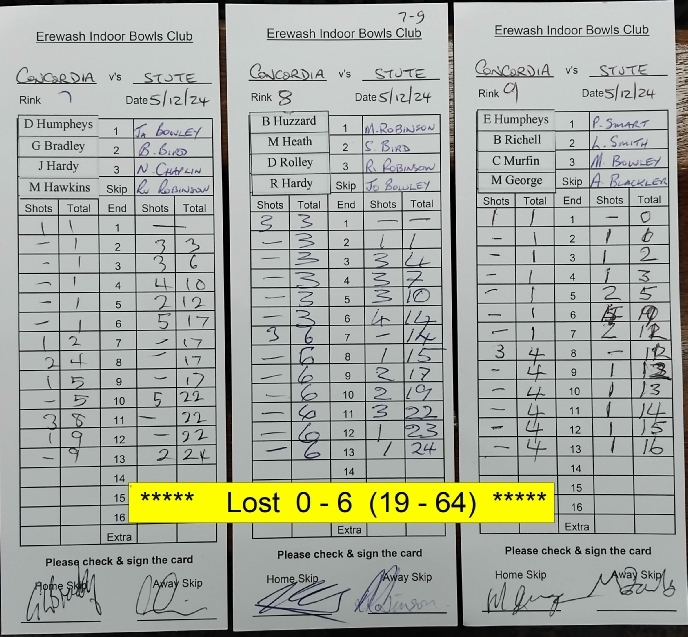 7-9
Erewash Indoor Bowls Club
CONCORDIA v's STUTE
Rink 7 Date 5/12/24
D Humpheys 1 JA BOWLEY
G Bradley 2 B. BIRD
J Hardy 3 N CHAPLIN
M Hawkins Skip RU ROBINSON
Shots Total End Shots Total
1 1 1 —
- 1 2 3 3
- 1 3 3 6
- 1 4 4 10
- 1 5 2 12
- 1 6 5 17
1 2 7 - 17
2 4 8 - 17
1 5 9 - 17
- 5 10 5 22
3 8 11 - 22
1 9 12 - 22
- 9 13 2 24
14
15
16
Extra
Please check & sign the card
Home Skip Away Skip
Erewash Indoor Bowls Club
CONCORDIA v's STUTE
Rink 8 Date 5/12/24
B Huzzard 1 M. ROBINSON
M Heath 2 S. BIRD
D Rolley 3 R. ROBINSON
R Hardy Skip JO BOWLEY
Shots Total End Shots Total
3 3 1 - -
- 3 2 1 1
- 3 3 3 4
- 3 4 3 7
- 3 5 3 10
- 3 6 4 14
3 6 7 - 14
- 6 8 1 15
- 6 9 2 17
- 6 10 2 19
- 6 11 3 22
- 6 12 1 23
- 6 13 1 24
14
Extra
Please check & sign the card
Home Skip Away Skip
Erewash Indoor Bowls Club
CONCORDIA v's STUTE
Rink 9 Date 5/12/24
E Humpheys 1 P. SMART
B Richell 2 L. SMITH
C Murfin 3 M. BOWLEY
M George Skip A. BLACKLER
Shots Total End Shots Total
1 1 1 - 0
- 1 2 1
- 1 3 1 2
- 1 4 1 3
- 1 5 2 5
- 1 6
- 1 7 2 12
3 4 8 - 12
- 4 9 1
- 4 10 1 13
- 4 11 1 14
- 4 12 1 15
- 4 13 1 16
14
15
16
Extra
Please check & sign the card
Home Skip Away Skip
***** Lost 0 - 6 (19 - 64) *****